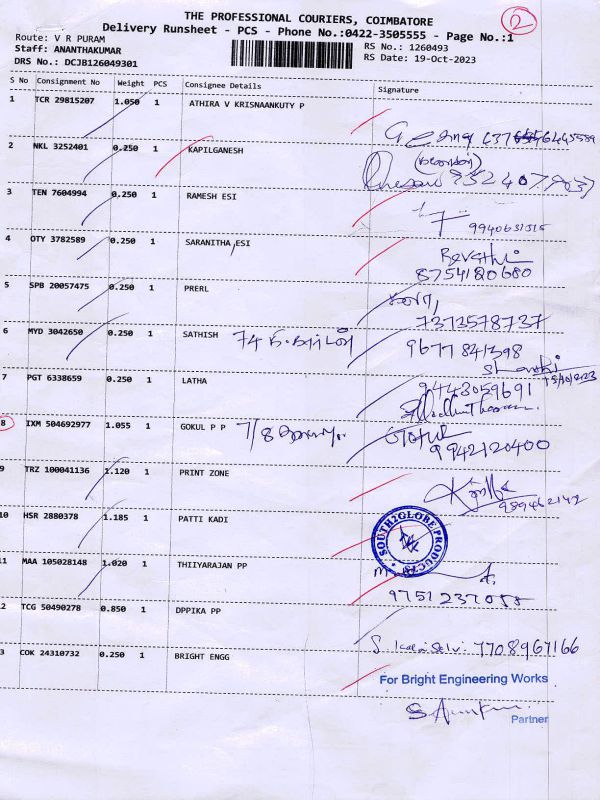 THE PROFESSIONAL COURIERS, COIMBATORE
2
Delivery Runsheet - PCS - Phone No.:0422-3505555 - Page No.:1
Route: V R PURAM
RS No.: 1260493
Staff: ANANTHAKUMAR
RS Date: 19-Oct-2023
DRS No.: DCJB126049301
S No Consignment No Weight PCS Consignee Details Signature
1 TCR 29815207 1.050 1 ATHIRA V KRISNAANKUTY P
2 NKL 3252401 0.250 1 KAPILGANESH
3 TEN 7604994 0.250 1 RAMESH ESI
9940631515
4 OTY 3782589 0.250 1 SARANITHA ESI
Revathi
8754180680
5 SPB 20057475 0.250 1 PRERL
7373578737
6 MYD 3042650 0.250 1 SATHISH 74
9677841398
7 PGT 6338659 0.250 1 LATHA
19/10/2023
9443059691
8 IXM 504692977 1.055 1 GOKUL P P 7/8
9942120400
9 TRZ 100041136 1.120 1 PRINT ZONE
989462142
10 HSR 2880378 1.185 1 PATTI KADI
SOUTH2GLOBE PRODUCTS
11 MAA 105028148 1.020 1 THIIYARAJAN PP
12 TCG 50490278 0.850 1 DPPIKA PP
S. Kalai Selvi: 7708967166
3 COK 24310732 0.250 1 BRIGHT ENGG
For Bright Engineering Works
Partner